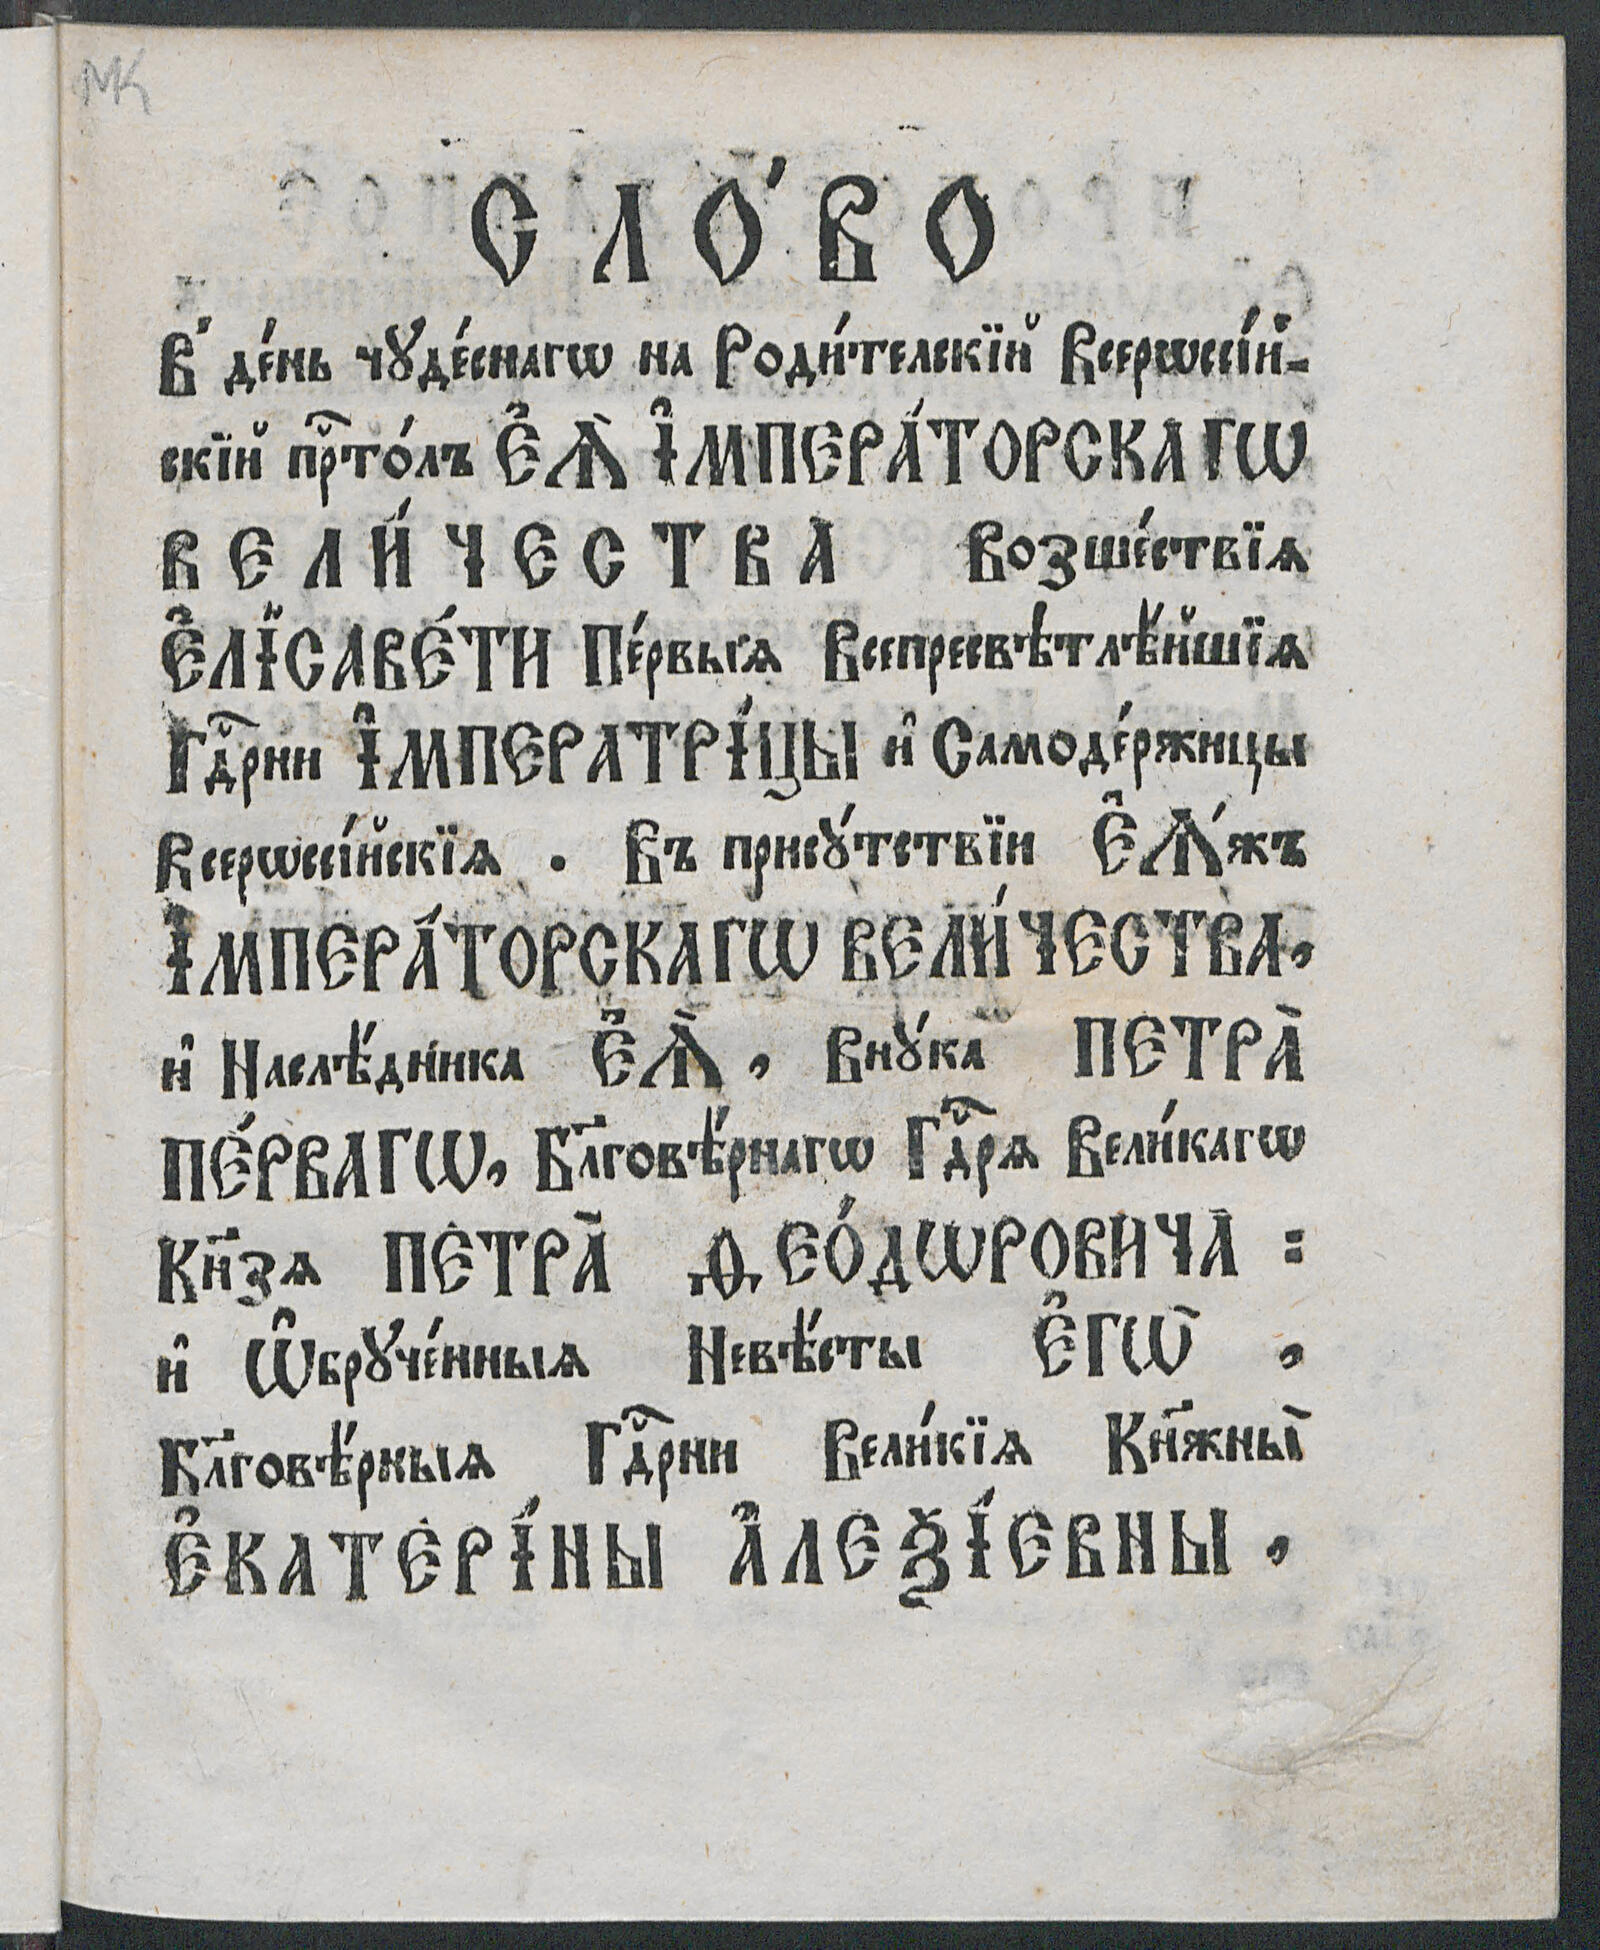 МК
СЛО́ВО
В̾ де́нь чꙋде́снагѡ на Роди́телскїй Всерѡссі́й-
скїй прⷭ҇то́лъ Є҆Ѧ̀ І҆МПЕРА́ТОРСКАГѠ
ВЕЛИ́ЧЕСТВА Возше́ствїѧ
Є҆ЛІСАВЕ́ТИ Пе́рвыѧ Всепресвѣтлѣ́йшїѧ
Гдⷭ҇рни І҆МПЕРАТРІ́ЦЫ и҆ Самоде́ржицы
Всерѡссі́йскїѧ . Въ присꙋ́тствїи Є҆Ѧ́жъ
І҆МПЕРА́ТОРСКАГѠ ВЕЛИ́ЧЕСТВА,
и҆ Наслѣ́дника Є҆Ѧ̀, Внꙋ́ка ПЕТРА̀
ПЕ́РВАГѠ, Бл҃говѣ́рнагѡ Гдⷭ҇рѧ Вели́кагѡ
Кн҃зѧ ПЕТРА̀ Ѳ҆ЕО́ДѠРОВИЧА :
и҆ Ѡ҆брꙋче́нныѧ Невѣ́сты Є҆ГѠ̀ ,
Бл҃говѣ́рныѧ Гдⷭ҇рни Вели́кїѧ Кн҃жны̀
Є҆КАТЕРІ́НЫ А҆ЛЕѮІ́ЕВНЫ ,